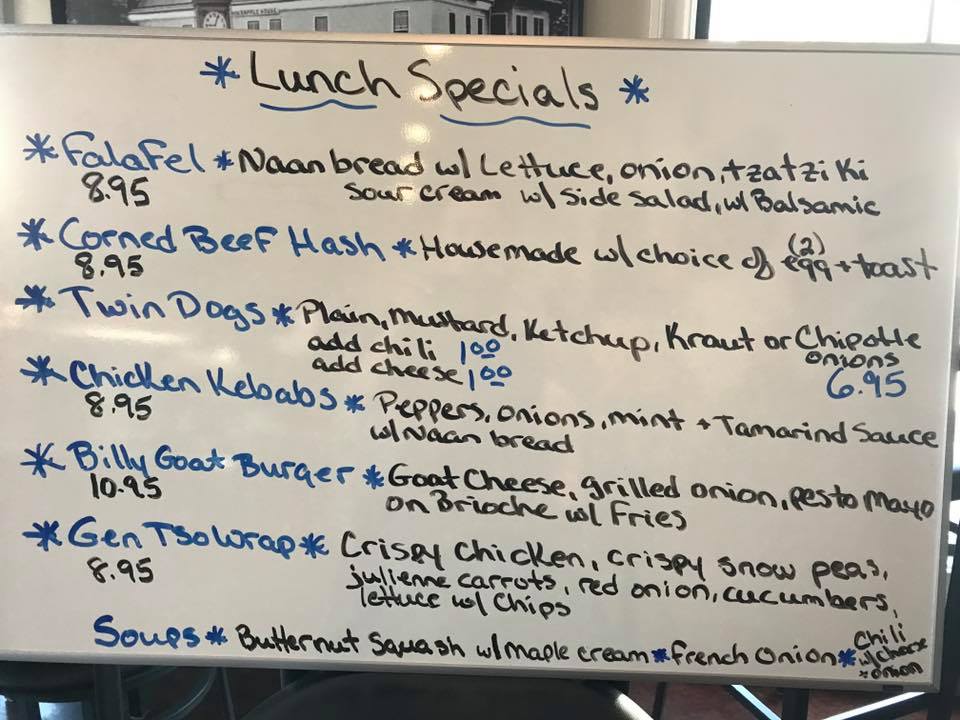 * Lunch Specials *
* Falafel * Naan bread w/ Lettuce, onion, tzatziki
8.95 sour cream w/ side salad, w/ Balsamic
* Corned Beef Hash * Housemade w/ choice of (2) egg + toast
8.95
* Twin Dogs * Plain, Mustard, Ketchup, Kraut or Chipotle
add chili 1.00 onions
add cheese 1.00 6.95
* Chicken Kebabs * Peppers, onions, mint + Tamarind Sauce
8.95 w/ Naan bread
* Billy Goat Burger * Goat Cheese, grilled onion, pesto Mayo
10.95 on Brioche w/ Fries
* Gen Tso Wrap * Crispy Chicken, crispy snow peas,
8.95 julienne carrots, red onion, cucumbers,
lettuce w/ Chips
Soups * Butternut Squash w/ maple cream * French Onion * Chili
w/ cheese
+ onion